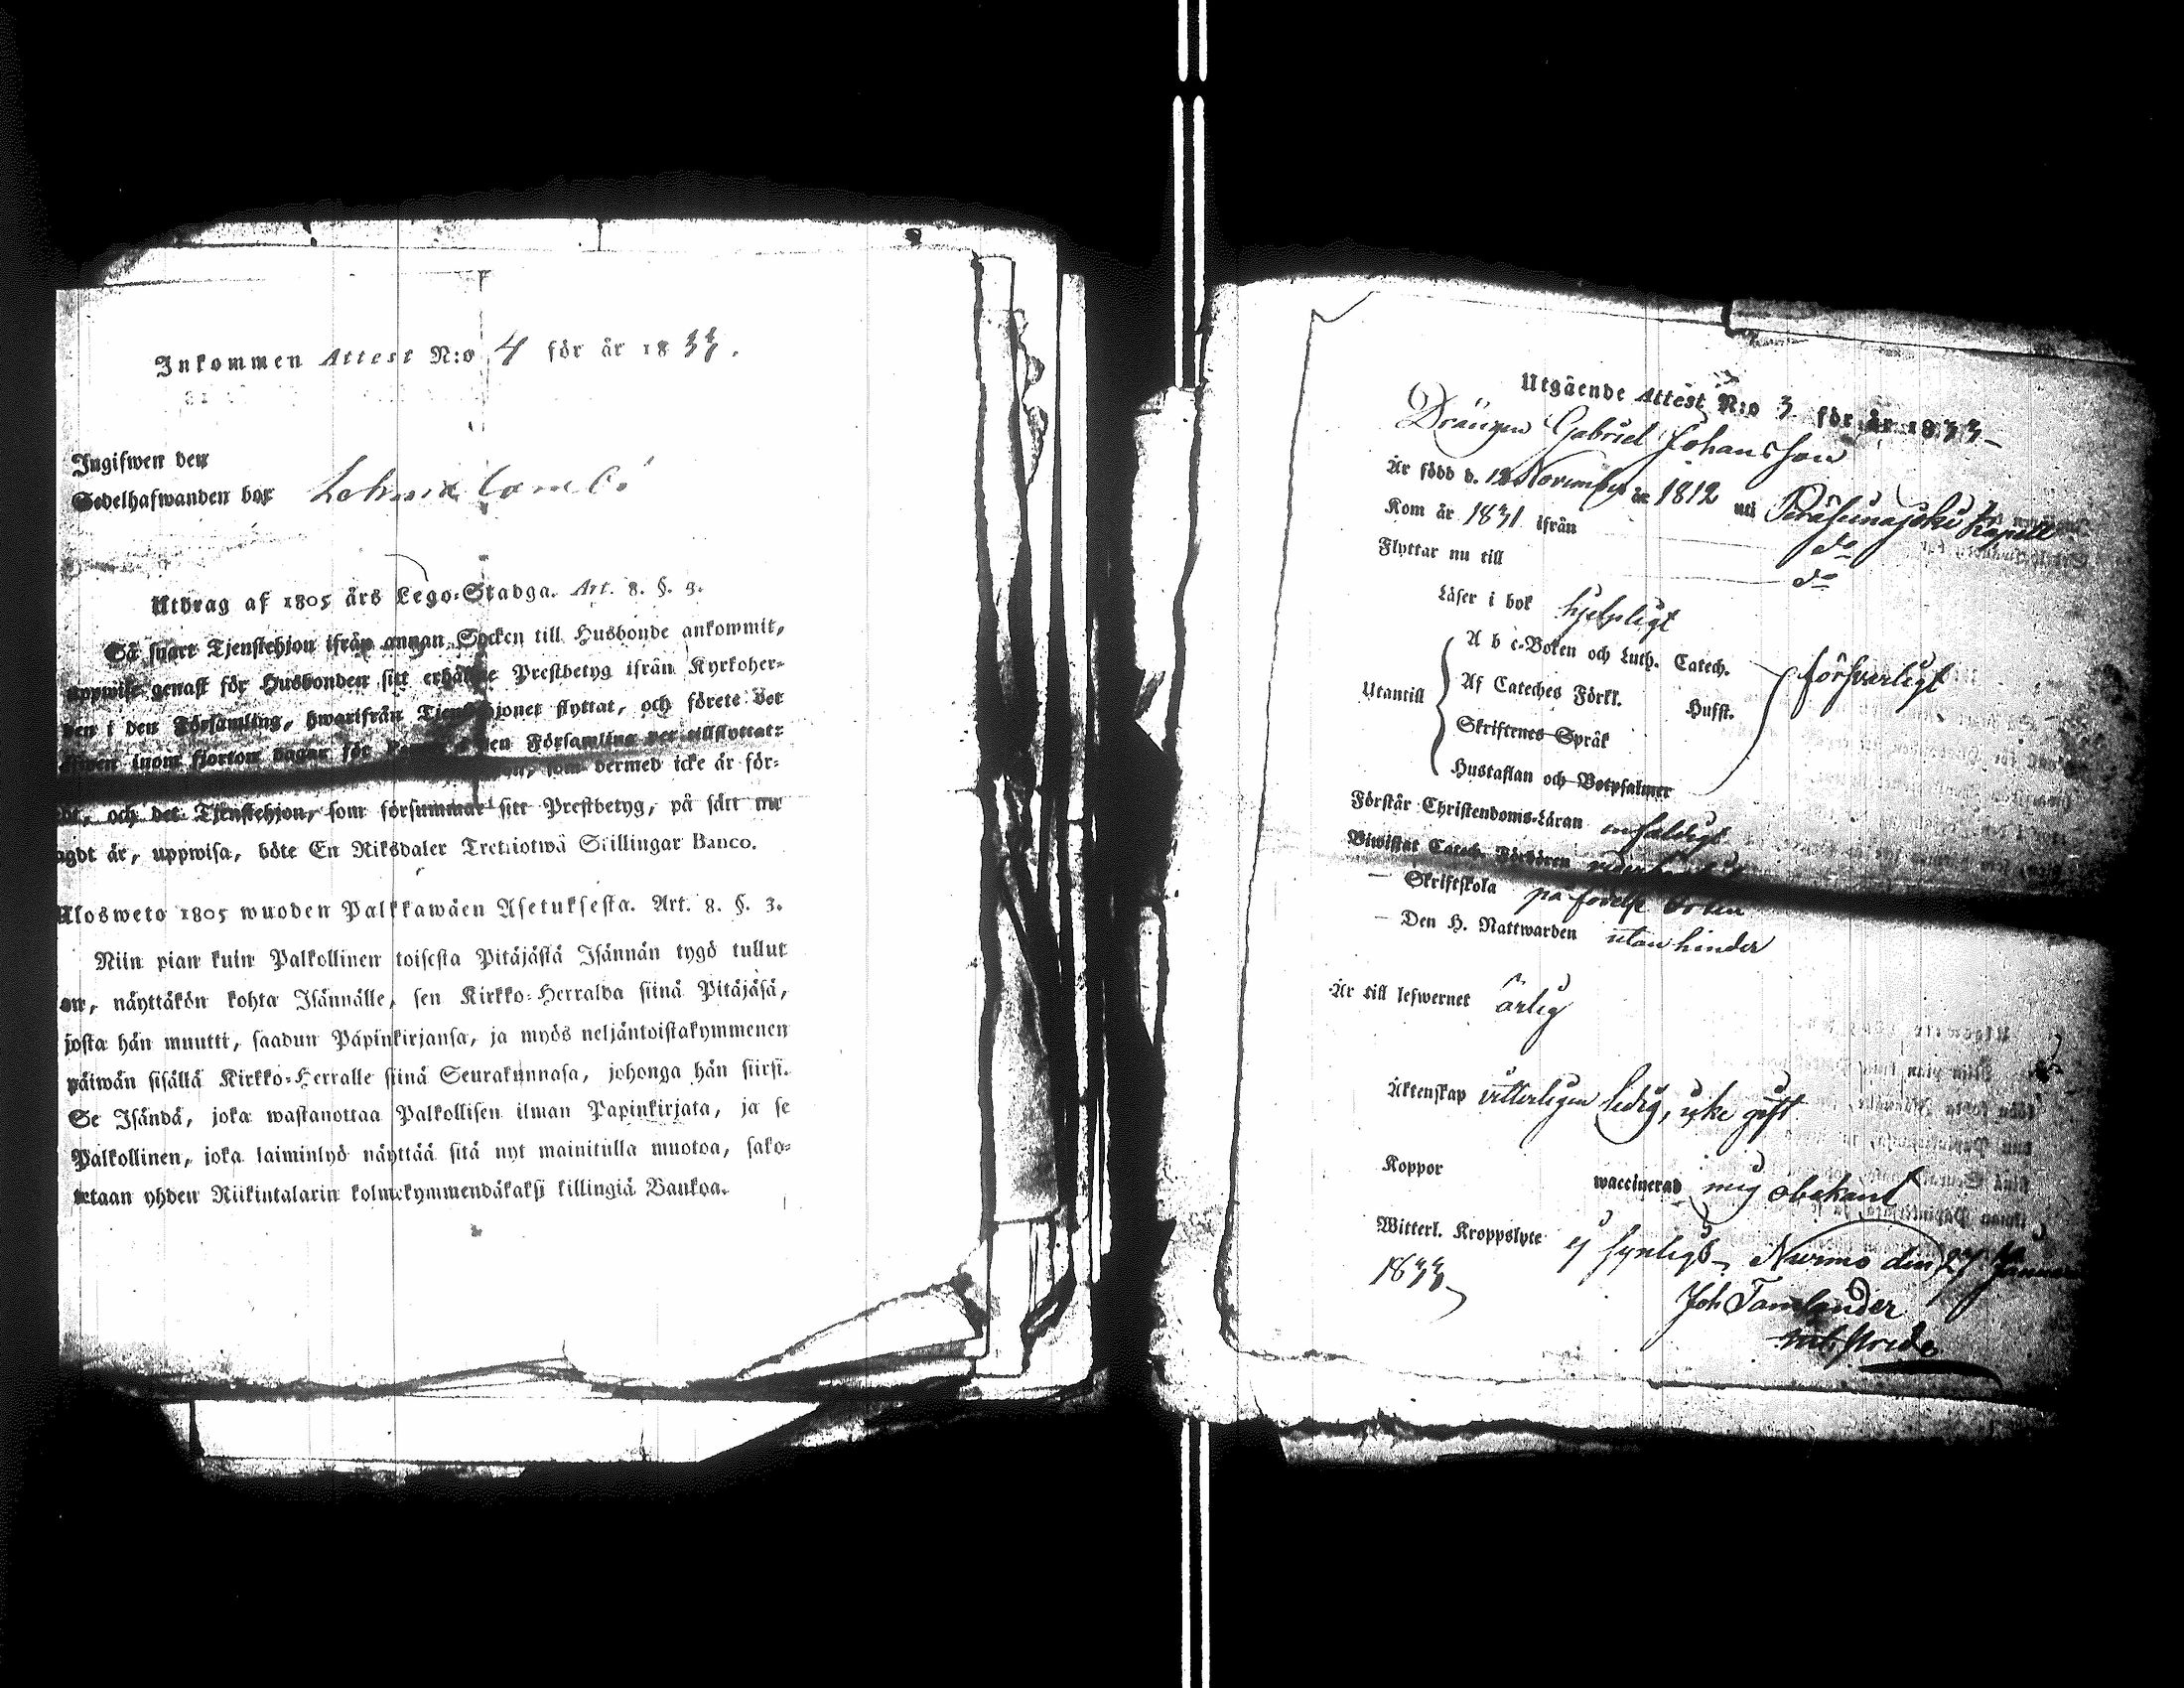 Inkommen Attest N:o 4 för år 1833.
Ingifwen den
Sedelhafwanden bor
Utdrag af 1805 års Lego-Stadga. Art. 8. §. 3.
Så snart Tjenstehjon ifrån annan Socken till Husbonde ankommit,
uppwise genast för Husbonden sitt erhållne Prestbetyg ifrån Kyrkoher-
den i den Församling, hwarifrån Tjenstehjonet flyttat, och förete det
inom fjorton dagar för den Församling det tillflyttat:
som dermed icke är för-
och det Tjenstehjon, som försummar sitt Prestbetyg, på sätt nu
sagdt är, uppwisa, böte En Riksdaler Trettiotwå Skillingar Banco.
Ulosweto 1805 wuoden Palkkawäen Asetuksesta. Art. 8. §. 3.
Niin pian kuin Palkollinen toisesta Pitäjästä Isännän tygö tullut
on, näyttäkön kohta Isännälle, sen Kirkko-Herralda siinä Pitäjäsä,
josta hän muutti, saadun Papinkirjansa, ja myös neljäntoistakymmenen
päiwän sisällä Kirkko-Herralle siinä Seurakunnasa, johonga hän siirsi.
Se Isändä, joka wastanottaa Palkollisen ilman Papinkirjata, ja se
Palkollinen, joka laiminlyö näyttää sitä nyt mainitulla muotoa, sako-
tetaan yhden Riikintalarin kolmekymmendäkaksi killingiä Bankoa.
Utgående Attest N:o 3 för år 1833
Drängen Gabriel Johansson
Är född d. 12 November år 1812 uti Peräseinäjoki Kapell
Kom år 1831 ifrån do
Flyttar nu till do
Läser i bok hjelpligt
A b c-Boken och Luth. Catech.
Utantill Af Cateches Förkl. Husst. försvarligt
Skriftenes Språk
Hustaflan och Botpsalmer
Förstår Christendoms-Läran enfaldigt
Biwistat Catech. Förhören
— Skriftskola på födelse orten
— Den H. Nattwarden utan hinder
Är till lefwernet ärlig
Äktenskap witterligen ledig, icke gift
Koppor waccinerad mig obekant
Witterl. Kroppslyte ej synligt, Nurmo den 27 Januari
1833
Joh Tamlander